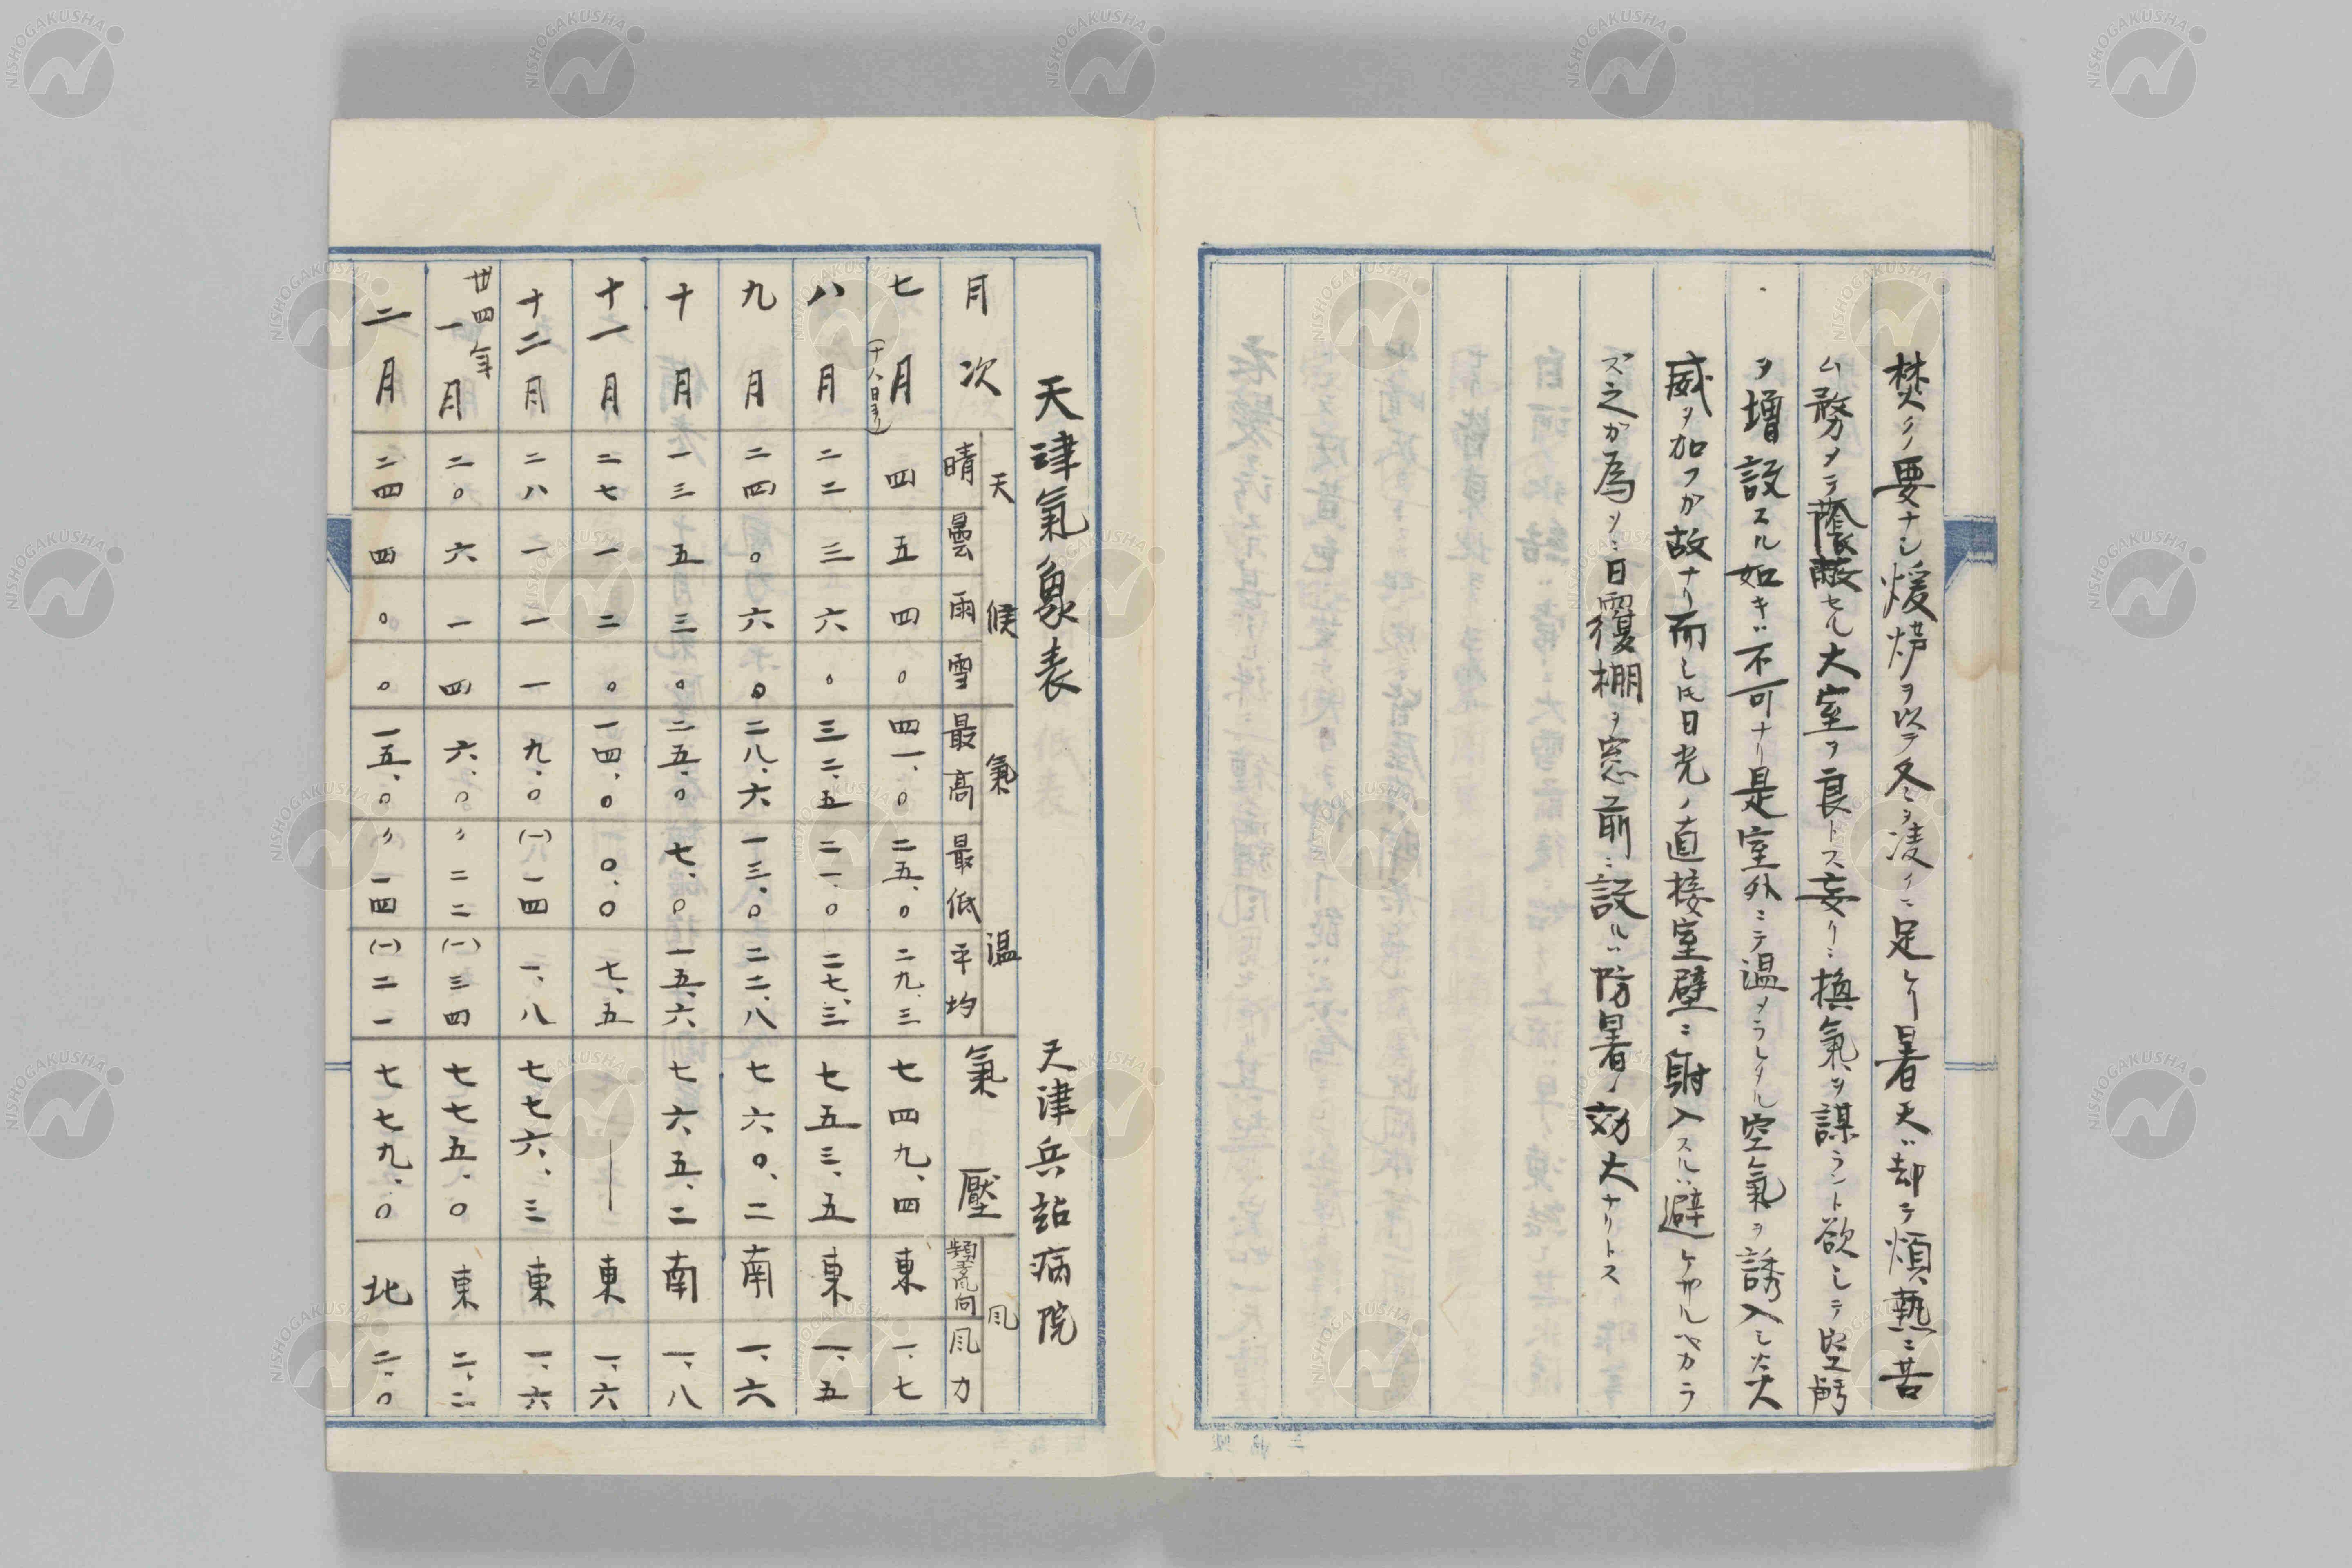 焚クノ要ナシ煖炉ヲ以テ冬ヲ凌クニ足レリ暑天ハ却テ煩熱ニ苦
ム務メテ蔭蔽セル大室ヲ良トス妄リニ換氣ヲ謀ラント欲シテ空
ヲ増設スル如キハ不可ナリ是室外ニテ温メラレタル空氣ヲ誘入シ炎
威ヲ加フガ故ナリ而シ𪜈日光ノ直接室壁ニ射入スルハ避ケサルベカラ
ズ之ガ為メニ日覆棚ヲ窓前ニ設ルハ防暑ノ効大ナリトス
天津氣象表 天津兵站病院
月次 天候 晴 曇 雨 雪 氣温 最高 最低 平均 氣壓 風 頻多風向 風力
七月(十八日ヨリ) 四 五 四 〇 四一、〇 二五、〇 二九、三 七四九、四 東 一、七
八月 二二 三 六 〇 三二、五 二一、〇 二七、三 七五三、五 東 一、五
九月 二四 〇 六 〇 二八、六 一三、〇 二二、八 七六〇、二 南 一、六
十月 一三 五 三 〇 二五、〇 七、〇 一五、六 七六五、二 南 一、八
十一月 二七 一 二 〇 一四、〇 〇、〇 七、五 ― 東 一、六
十二月 二八 一 一 一 九、〇 (一)一四 一、八 七七六、三 東 一、六
廿四年一月 二〇 六 一 四 六、〇 〃二二 (一)三四 七七五、〇 東 二、二
二月 二四 四 〇 〇 一五、〇 〃一四 (一)二一 七七九、〇 北 二、〇
NISHOGAKUSHA